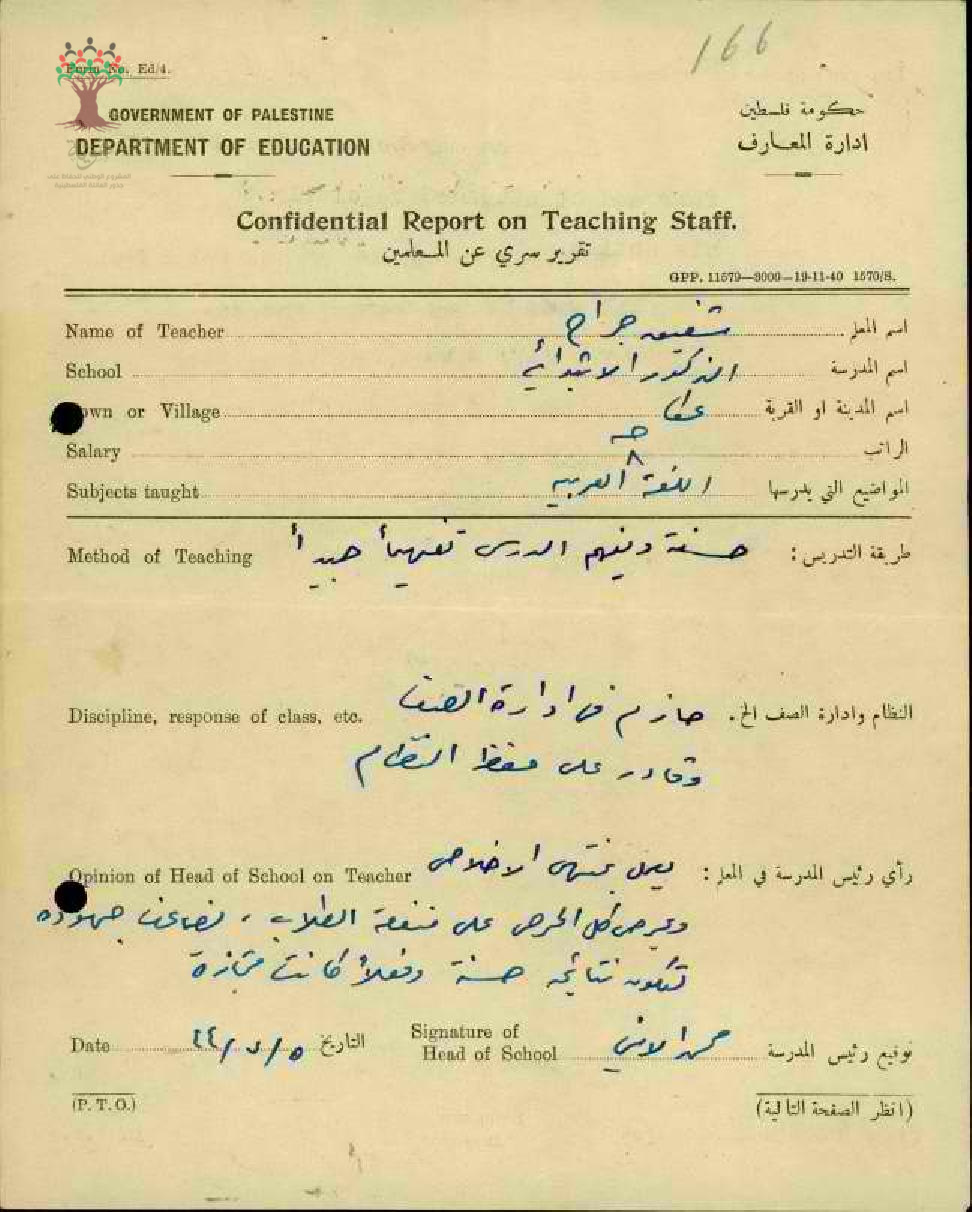 166
Form No. Ed/4.
GOVERNMENT OF PALESTINE
حكومة فلسطين
DEPARTMENT OF EDUCATION
ادارة المعارف
Confidential Report on Teaching Staff.
تقرير سري عن المعلمين
GPP. 11579—3000—19-11-40 1570/S.
Name of Teacher شفيق جراح اسم المعلم
School الذكور الابتدائية اسم المدرسة
Town or Village عكا اسم المدينة او القرية
Salary الراتب
Subjects taught اللغة العربيه المواضيع التي يدرسها
Method of Teaching حسنة ويفهم الدرس تفهيماً جيداً طريقة التدريس :
Discipline, response of class, etc. حازم في ادارة الصف النظام وادارة الصف الخ.
وقادر على حفظ النظام
Opinion of Head of School on Teacher يعمل بمنتهى الاخلاص رأي رئيس المدرسة في المعلم :
ويحرص كل الحرص على منفعة الطلاب ، يضاعف جهوده
لتكون نتائجه حسنة وفعلاً كانت ممتازة
Date التاريخ Signature of Head of School توقيع رئيس المدرسة
(P. T. O.)
(انظر الصفحة التالية)